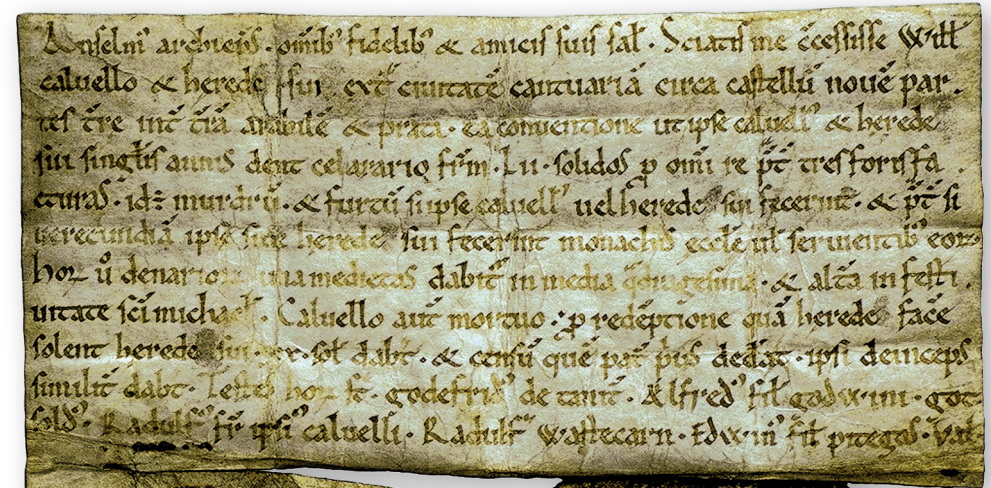 Anselm' archiep̄s. om̄ib' fidelib' & amicis suis sal̄. Sciatis me c̄cessisse Will̄
caluello & herede sui ext̄ ciuitatē cantuariā circa castellū nouē par.
tes t̄re int̄ t̄rā arabilē & prata. ea conuentione ut ipse caluell' & herede
sui singl̄is annis dent celarario fr̄m. Lv. solidos p om̄i re p̄t tres forisfa
cturas. idē murdrū. & furtū si ipse caluell' uel herede sui fecerint. & p̄t si
uerecundiā ipse siue herede sui fecerint monachis eccl̄e ul̄ seruientib' eor.
hor ū denarior una medietas dabit̄ in media q̄dragesima. & alt̄a in festi.
uitate sc̄i michael̄. Caluello aut̄ mortuo. p redēptione quā herede facē
solent herede sui. xx. sol̄ dabt̄. & censū quē pat̄ p̄us dedat̄. ipsi deinceps
similit̄ dabt̄. Testes hor st̄. godefrid' de tanit̄. Ælfred' fil̄ godwini. got
sold'. Radulf' fi' ipsi' caluelli. Radulf' Wastecarn. Edwin' fil̄